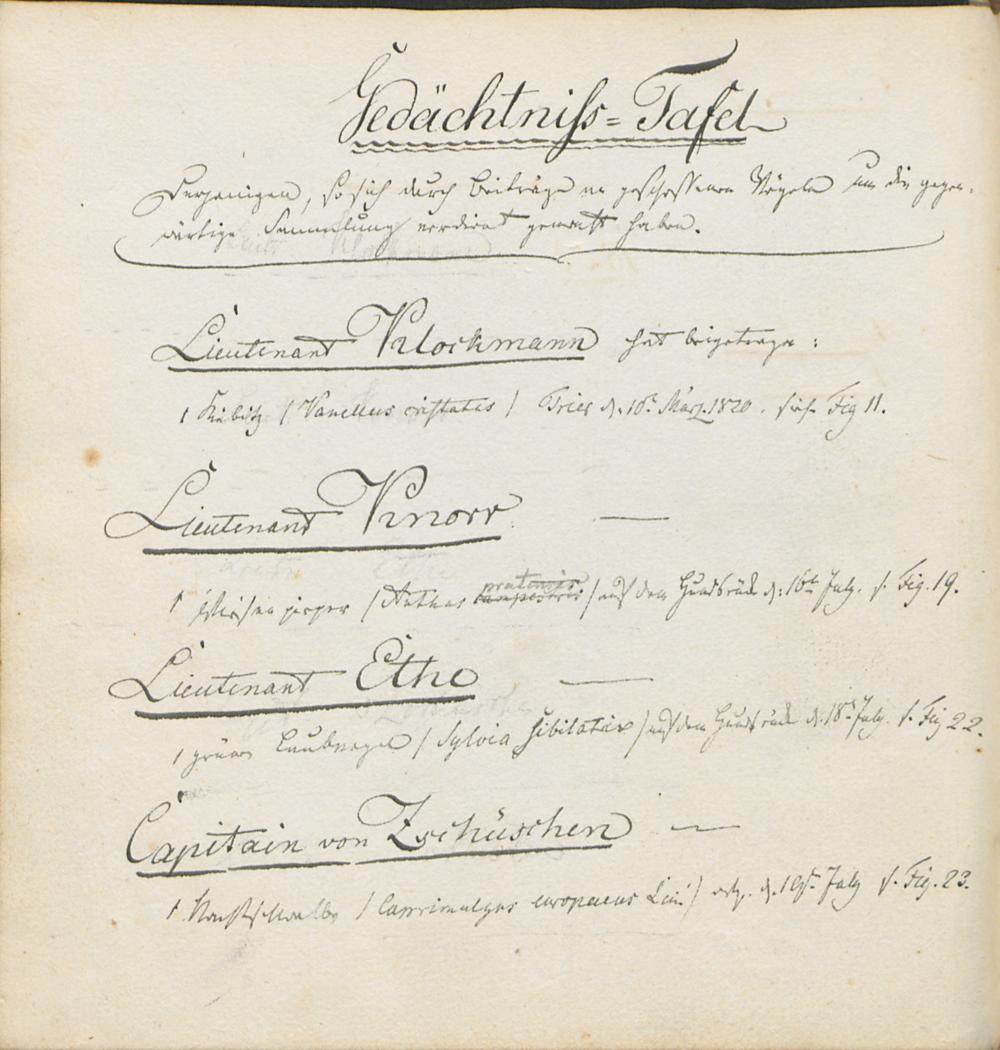 Gedächtniſs=Tafel
Derjenigen, so sich durch Beiträge an geschossenen Vögeln um die gegen-
wärtige Sammlung verdient gemacht haben.
Lieutenant Klockmann hat beigetragen:
1 Kiebitz / Vanellus cristatus / Trier d. 10t März 1820. siehe Fig 11.
Lieutenant Knorr —
1 Wiesenpieper / Anthus pratensis / auf dem Hundsrück d: 16t July. s. Fig. 19.
Lieutenant Ethe —
1 grüner Laubvogel / Sylvia sibilatrix / auf dem Hundsrück d: 18t July. s. Fig 22.
Capitain von Zschüschen —
1 Nachtschwalbe / Caprimulgus europaeus Lin: / d. 19t July s. Fig. 23.